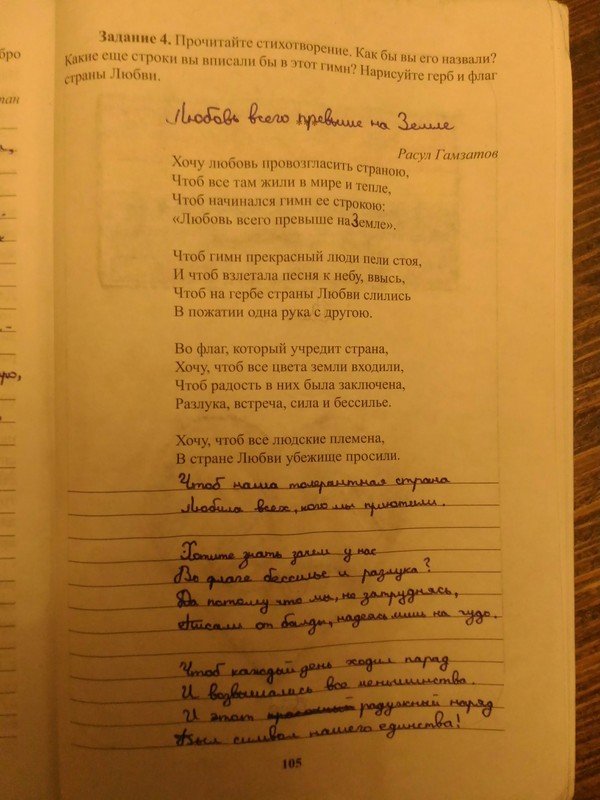 бро
тап
Задание 4. Прочитайте стихотворение. Как бы вы его назвали?
Какие еще строки вы вписали бы в этот гимн? Нарисуйте герб и флаг
страны Любви.
Любовь всего превыше на Земле
Расул Гамзатов
Хочу любовь провозгласить страною,
Чтоб все там жили в мире и тепле,
Чтоб начинался гимн ее строкою:
«Любовь всего превыше на Земле».
Чтоб гимн прекрасный люди пели стоя,
И чтоб взлетала песня к небу, ввысь,
Чтоб на гербе страны Любви слились
В пожатии одна рука с другою.
Во флаг, который учредит страна,
Хочу, чтоб все цвета земли входили,
Чтоб радость в них была заключена,
Разлука, встреча, сила и бессилье.
Хочу, чтоб все людские племена,
В стране Любви убежище просили.
Чтоб наша толерантная страна
Любила всех, кого мы приютили.
Хотите знать зачем у нас
Во флаге бессилье и разлука?
Да потому что мы, не запрудняясь,
Писали от балды, надеясь лишь на чудо.
Чтоб каждый день ходил парад
И возвышались все меньшинства.
И этот радужный наряд
Был символ нашего единства!
105